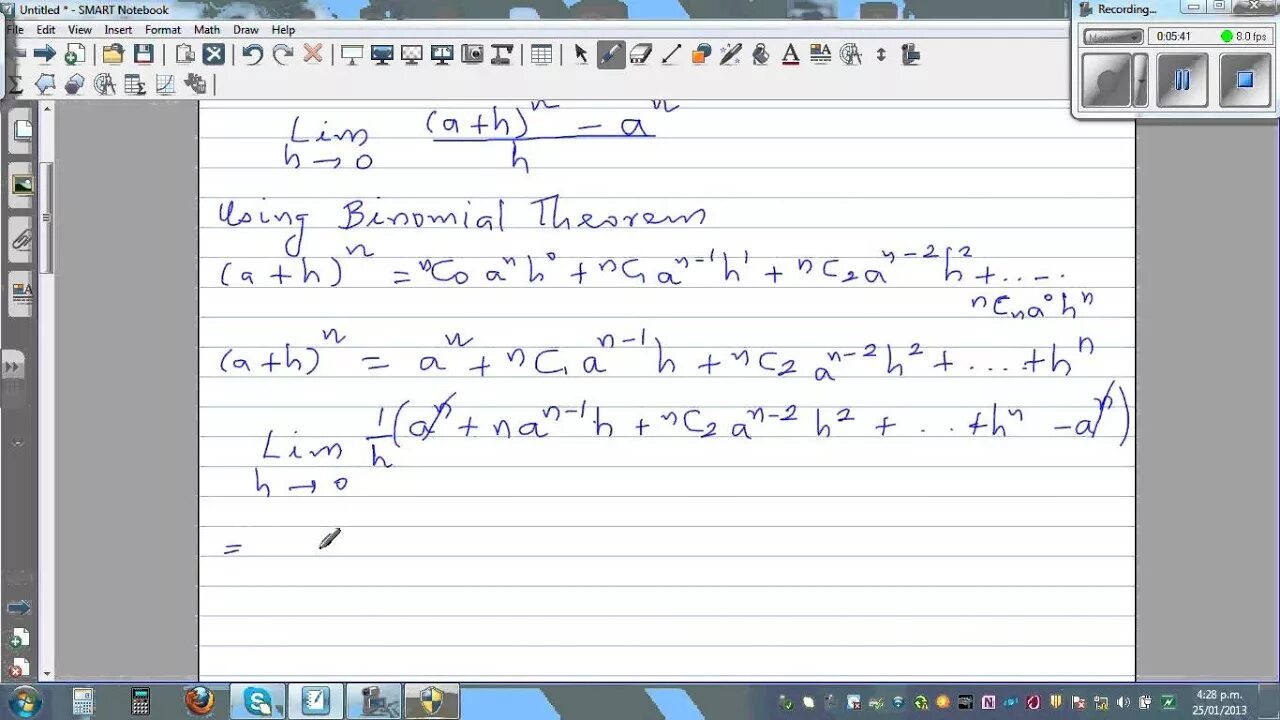 Untitled * - SMART Notebook
File Edit View Insert Format Math Draw Help
Recording...
0:05:41 8.0 fps
Lim h→0 ((a+h)ⁿ - aⁿ)/h
Using Binomial Theorem
(a+h)ⁿ = ⁿC₀ aⁿh⁰ + ⁿC₁aⁿ⁻¹h¹ + ⁿC₂aⁿ⁻²h² + ....
ⁿCₙa⁰hⁿ
(a+h)ⁿ = aⁿ + ⁿC₁aⁿ⁻¹h + ⁿC₂ aⁿ⁻²h² + ... + hⁿ
Lim h→0 1/h (aⁿ + naⁿ⁻¹h + ⁿC₂aⁿ⁻²h² + .. + hⁿ - aⁿ)
=
4:28 p.m.
25/01/2013